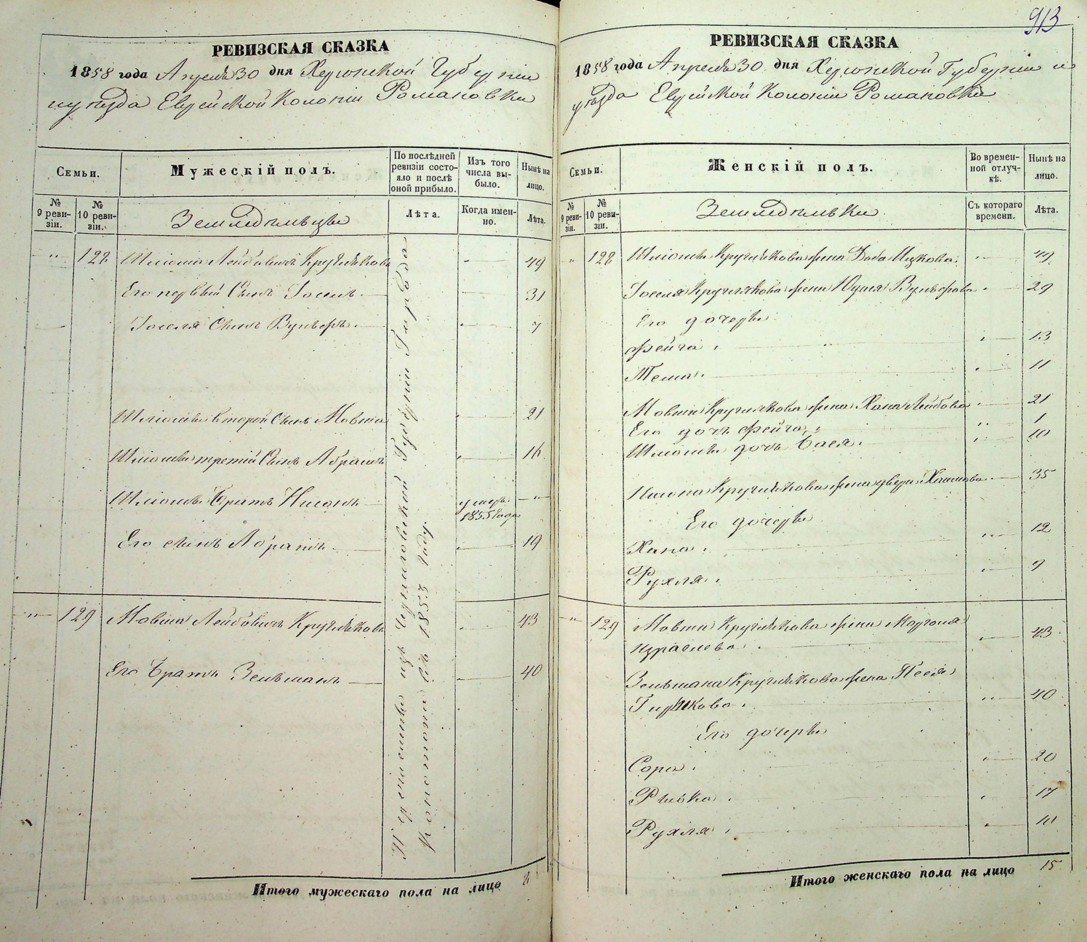 РЕВИЗСКАЯ СКАЗКА
1858 года Апреля 30 дня Херсонской Губерніи
и уезда Еврейской Колоніи Романовки
Семьи.
Мужескій полъ.
По послѣдней ревизіи состояло и послѣ оной прибыло.
Изъ того числа выбыло.
Нынѣ на лицо.
№ 9 ревизіи.
№ 10 ревизіи.
Земледѣльцы
Лѣта.
Когда именно.
Лѣта.
128 Шліома Лейбовичъ Кругляковъ 49
Его первый Сынъ Іосель 31
Іоселя Сынъ Вульфъ 7
Шліомы второй Сынъ Мовша 21
Шліомы третій Сынъ Абрамъ 16
Шліомы Братъ Нисонъ умеръ 1855 года
Его сынъ Абрамъ 19
129 Мовша Лейбовичъ Кругляковъ 43
Его Братъ Зельманъ 40
Перечислены изъ Губерніи
въ 1853 году.
Итого мужескаго пола на лицо 8
913
РЕВИЗСКАЯ СКАЗКА
1858 года Апреля 30 дня Херсонской Губерніи и
уезда Еврейской Колоніи Романовки
Семьи.
Женскій полъ.
Во временной отлучкѣ.
Нынѣ на лицо.
№ 9 ревизіи.
№ 10 ревизіи.
Земледѣлки
Съ котораго времени.
Лѣта.
128 Шліомы Круглякова жена Баба Ицкова 49
Іоселя Круглякова жена Юдея Вульфова 29
Его дочери
Фейга 13
Тема 11
Мовши Круглякова жена Хана Лейбова 21
Его дочь Фейга 1
Шліомы дочь Бася 10
Нисона Круглякова жена Двери 35
Его дочери
Хана 12
Рухля 9
129 Мовши Круглякова жена
Израелева 43
Зельмана Круглякова жена Песя
Гиршкова 40
Его дочери
Сора 20
Ривка 17
Рухля 10
Итого женскаго пола на лицо 15